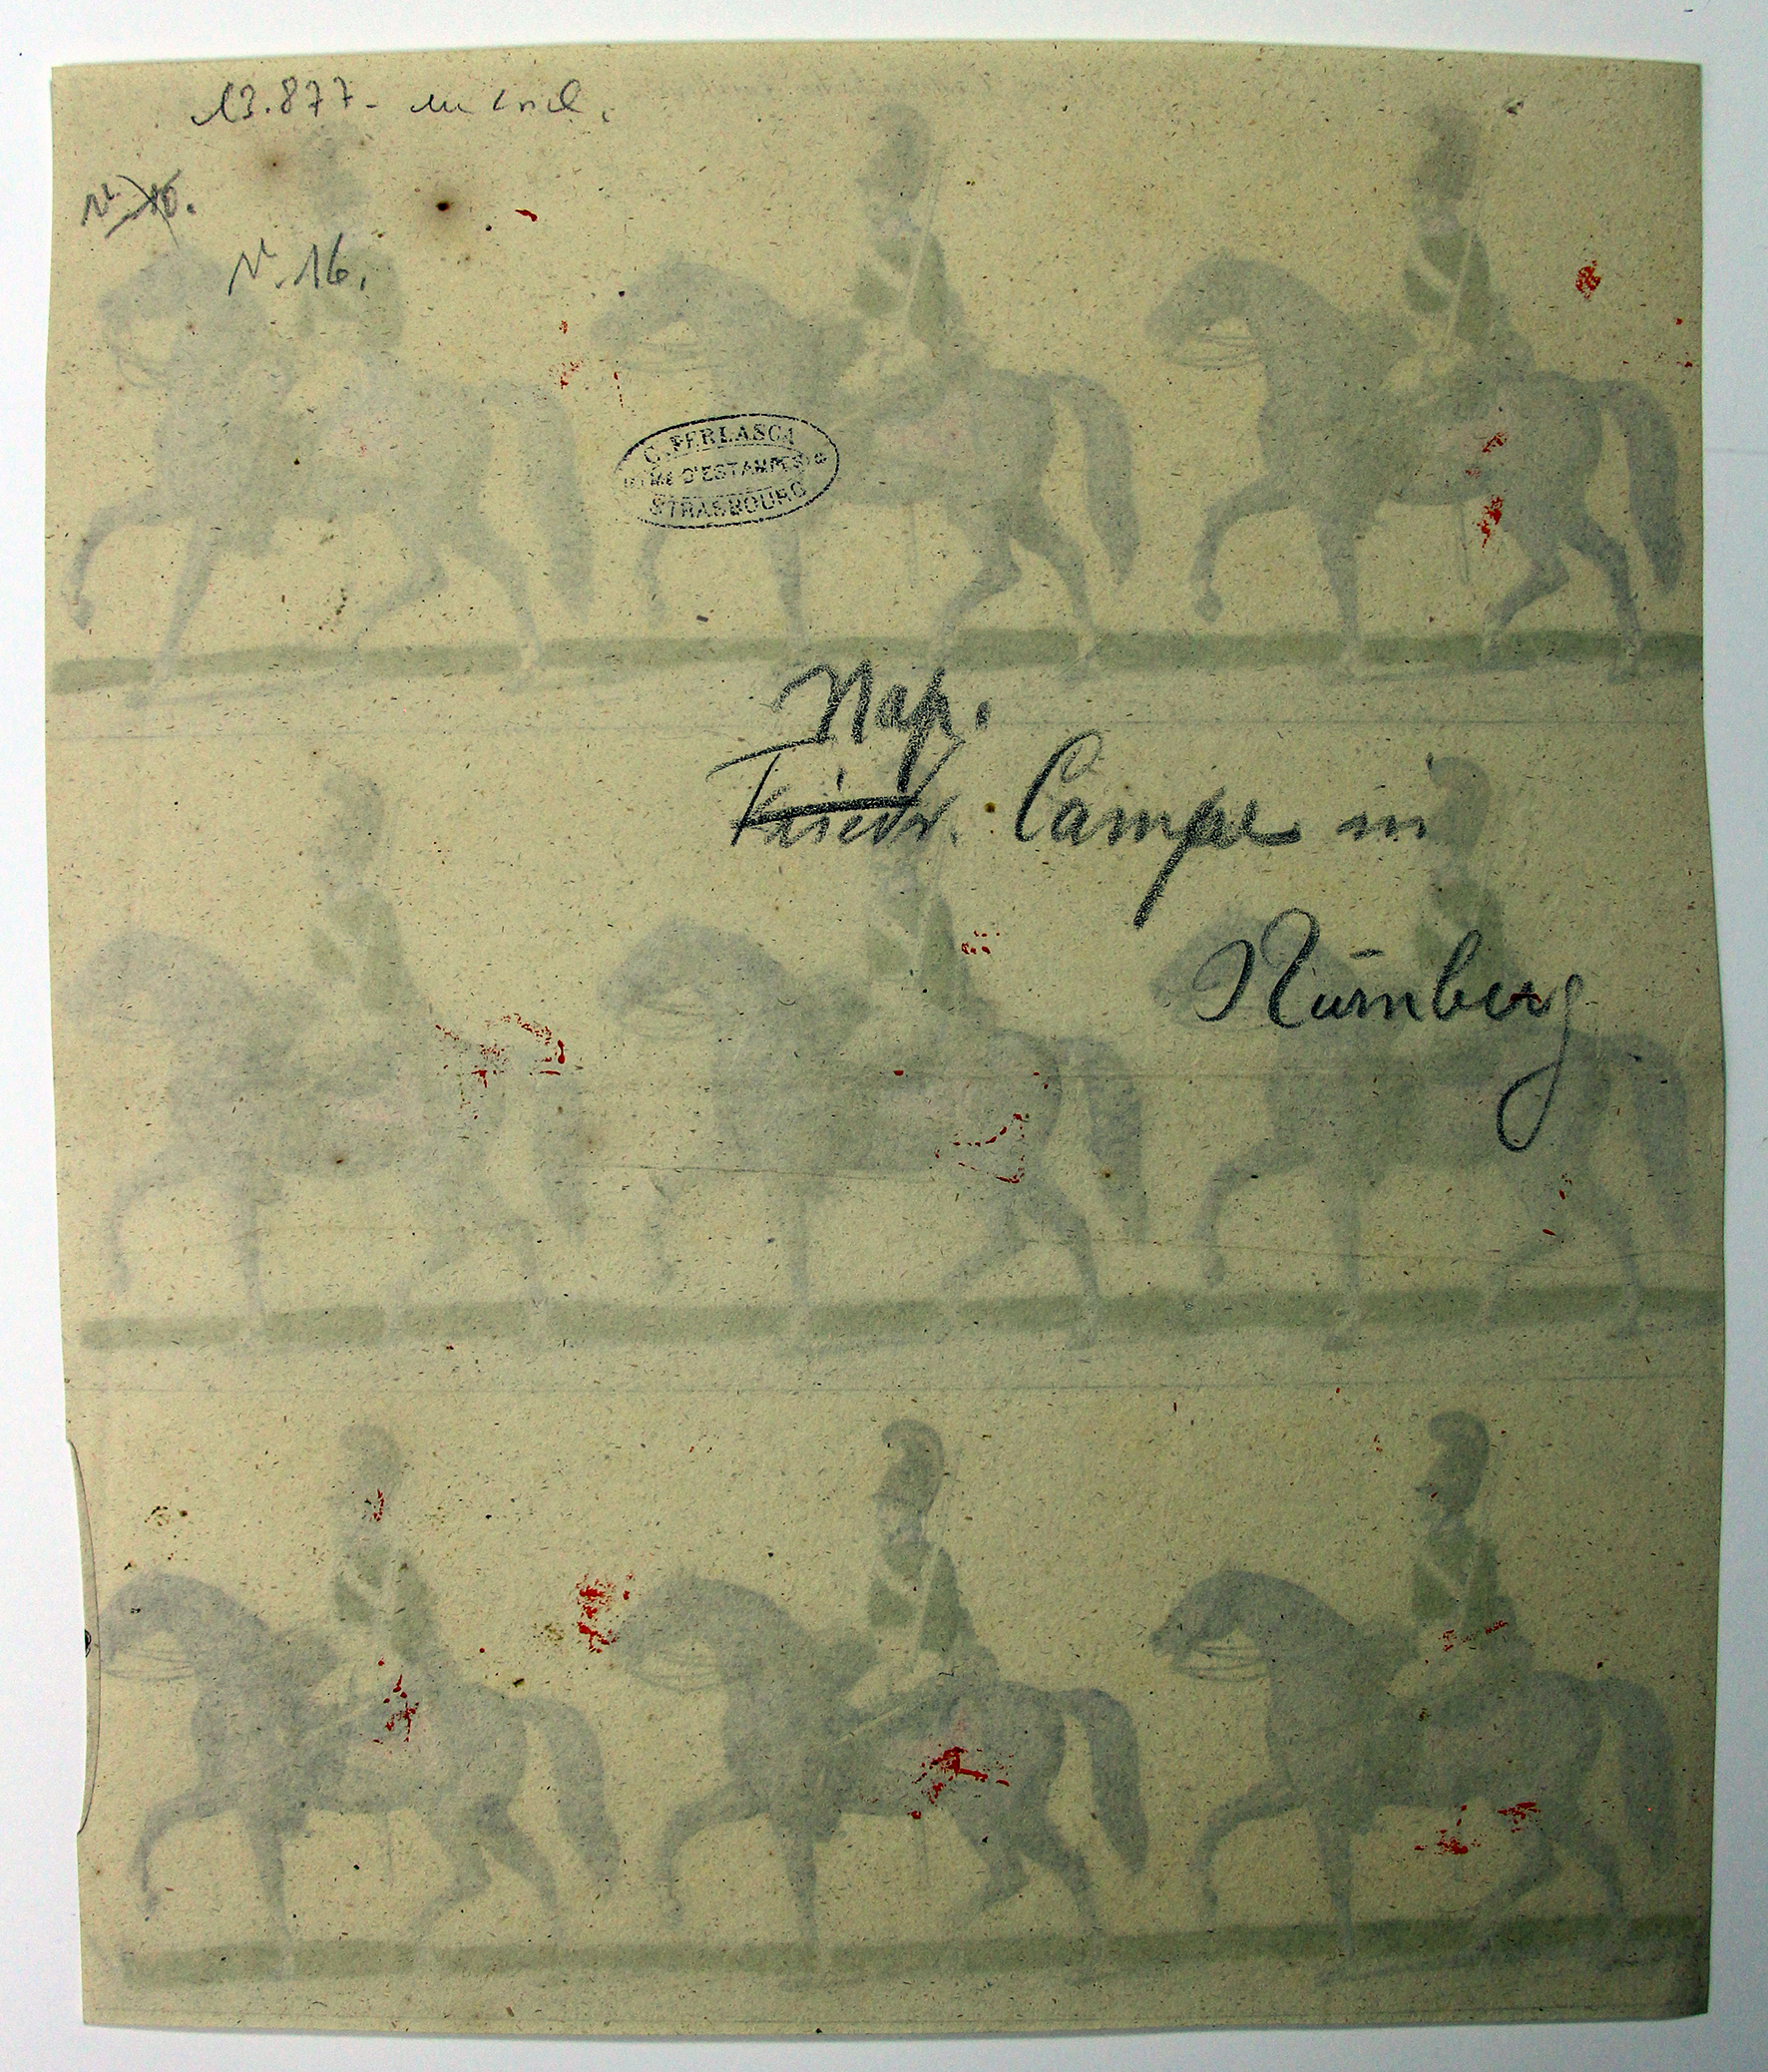 13.877-
N° 10.
N° 16.
C. FERLASCA
D'ESTAMPES
STRASBOURG
Nap.
Friedr. Campe in
Nürnberg